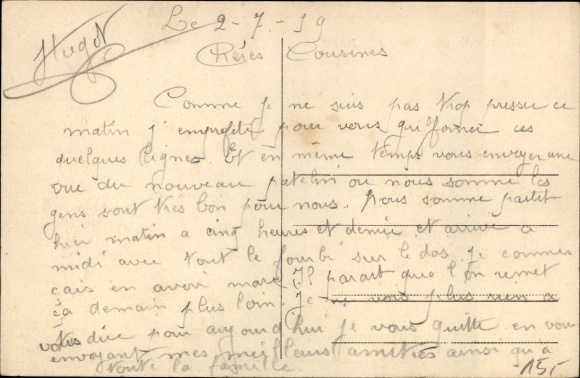 Le 2-7-19
Hugot
Chères Cousines
Comme je ne suis pas trop presser ce
matin j'emprofite pour vous griffonner ces
quelques lignes. Et en même temps vous envoyer une
vue du nouveau patelin ou nous somme les
gens sont très bon pour nous. Nous somme partit
hier matin a cinq heures et demie et arrivé a
midi avec tout le fourbi sur le dos je commen
cais en avoir marre Il parait que l'on remet
ça demain plus loin. Je ne vois plus rien a
vous dire pour aujourd'hui je vous quitte en vous
envoyant mes meilleurs amitiés ainsi qu'a
toute la famille
15,-